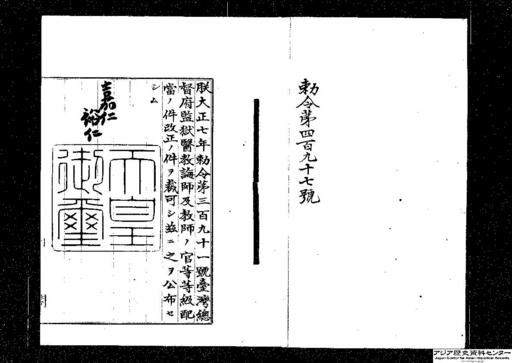 勅令第四百九十七號
朕大正七年勅令第三百九十一號臺灣總
督府監獄醫教誨師及教師ノ官等等級配
當ノ件改正ノ件ヲ裁可シ茲ニ之ヲ公布セ
シム
嘉仁
裕仁
天皇
御璽
アジア歴史資料センター
Japan Center for Asian Historical Records